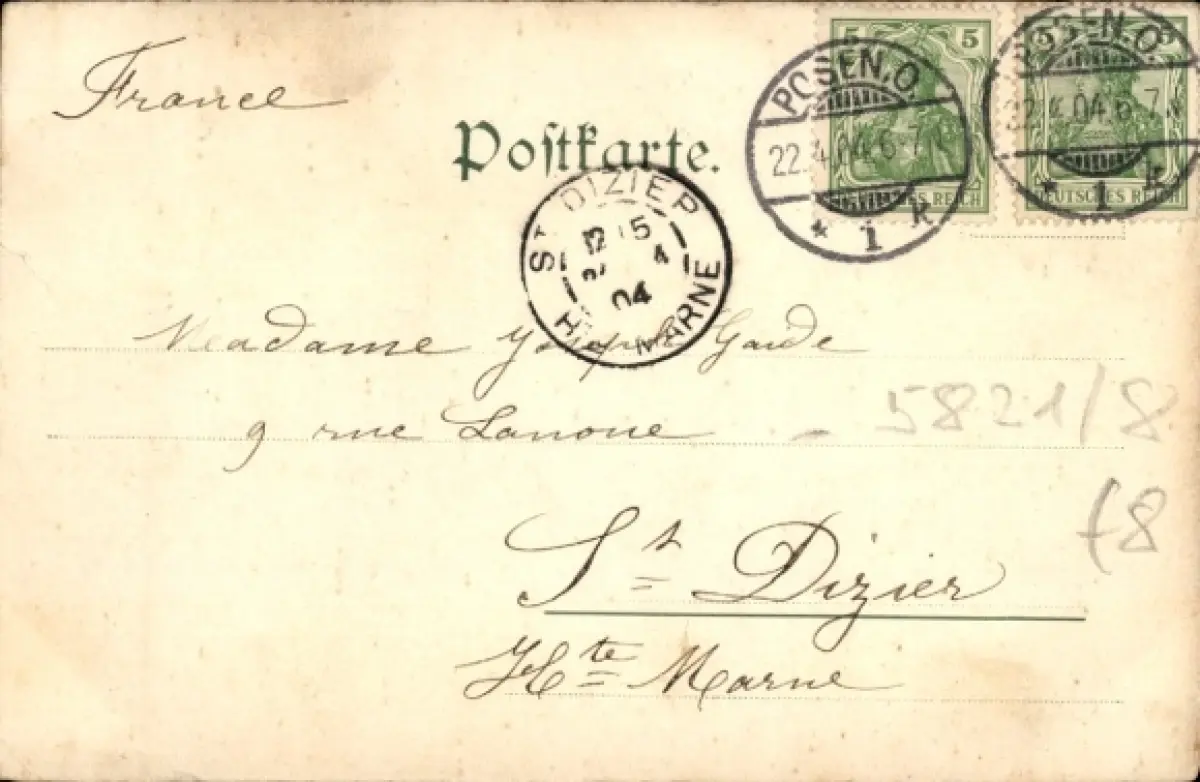 France
Postkarte.
5 5
POSEN.O.
22.4.04.6-7
* 1 k
DEUTSCHES REICH
5 5
POSEN.O.
22.4.04.6-7
* 1 k
DEUTSCHES REICH
ST DIZIER
12 15
4
04
HTE MARNE
Madame Joseph Garde
9 rue Lanoue
5821/8
St Dizier
f8
Hte Marne